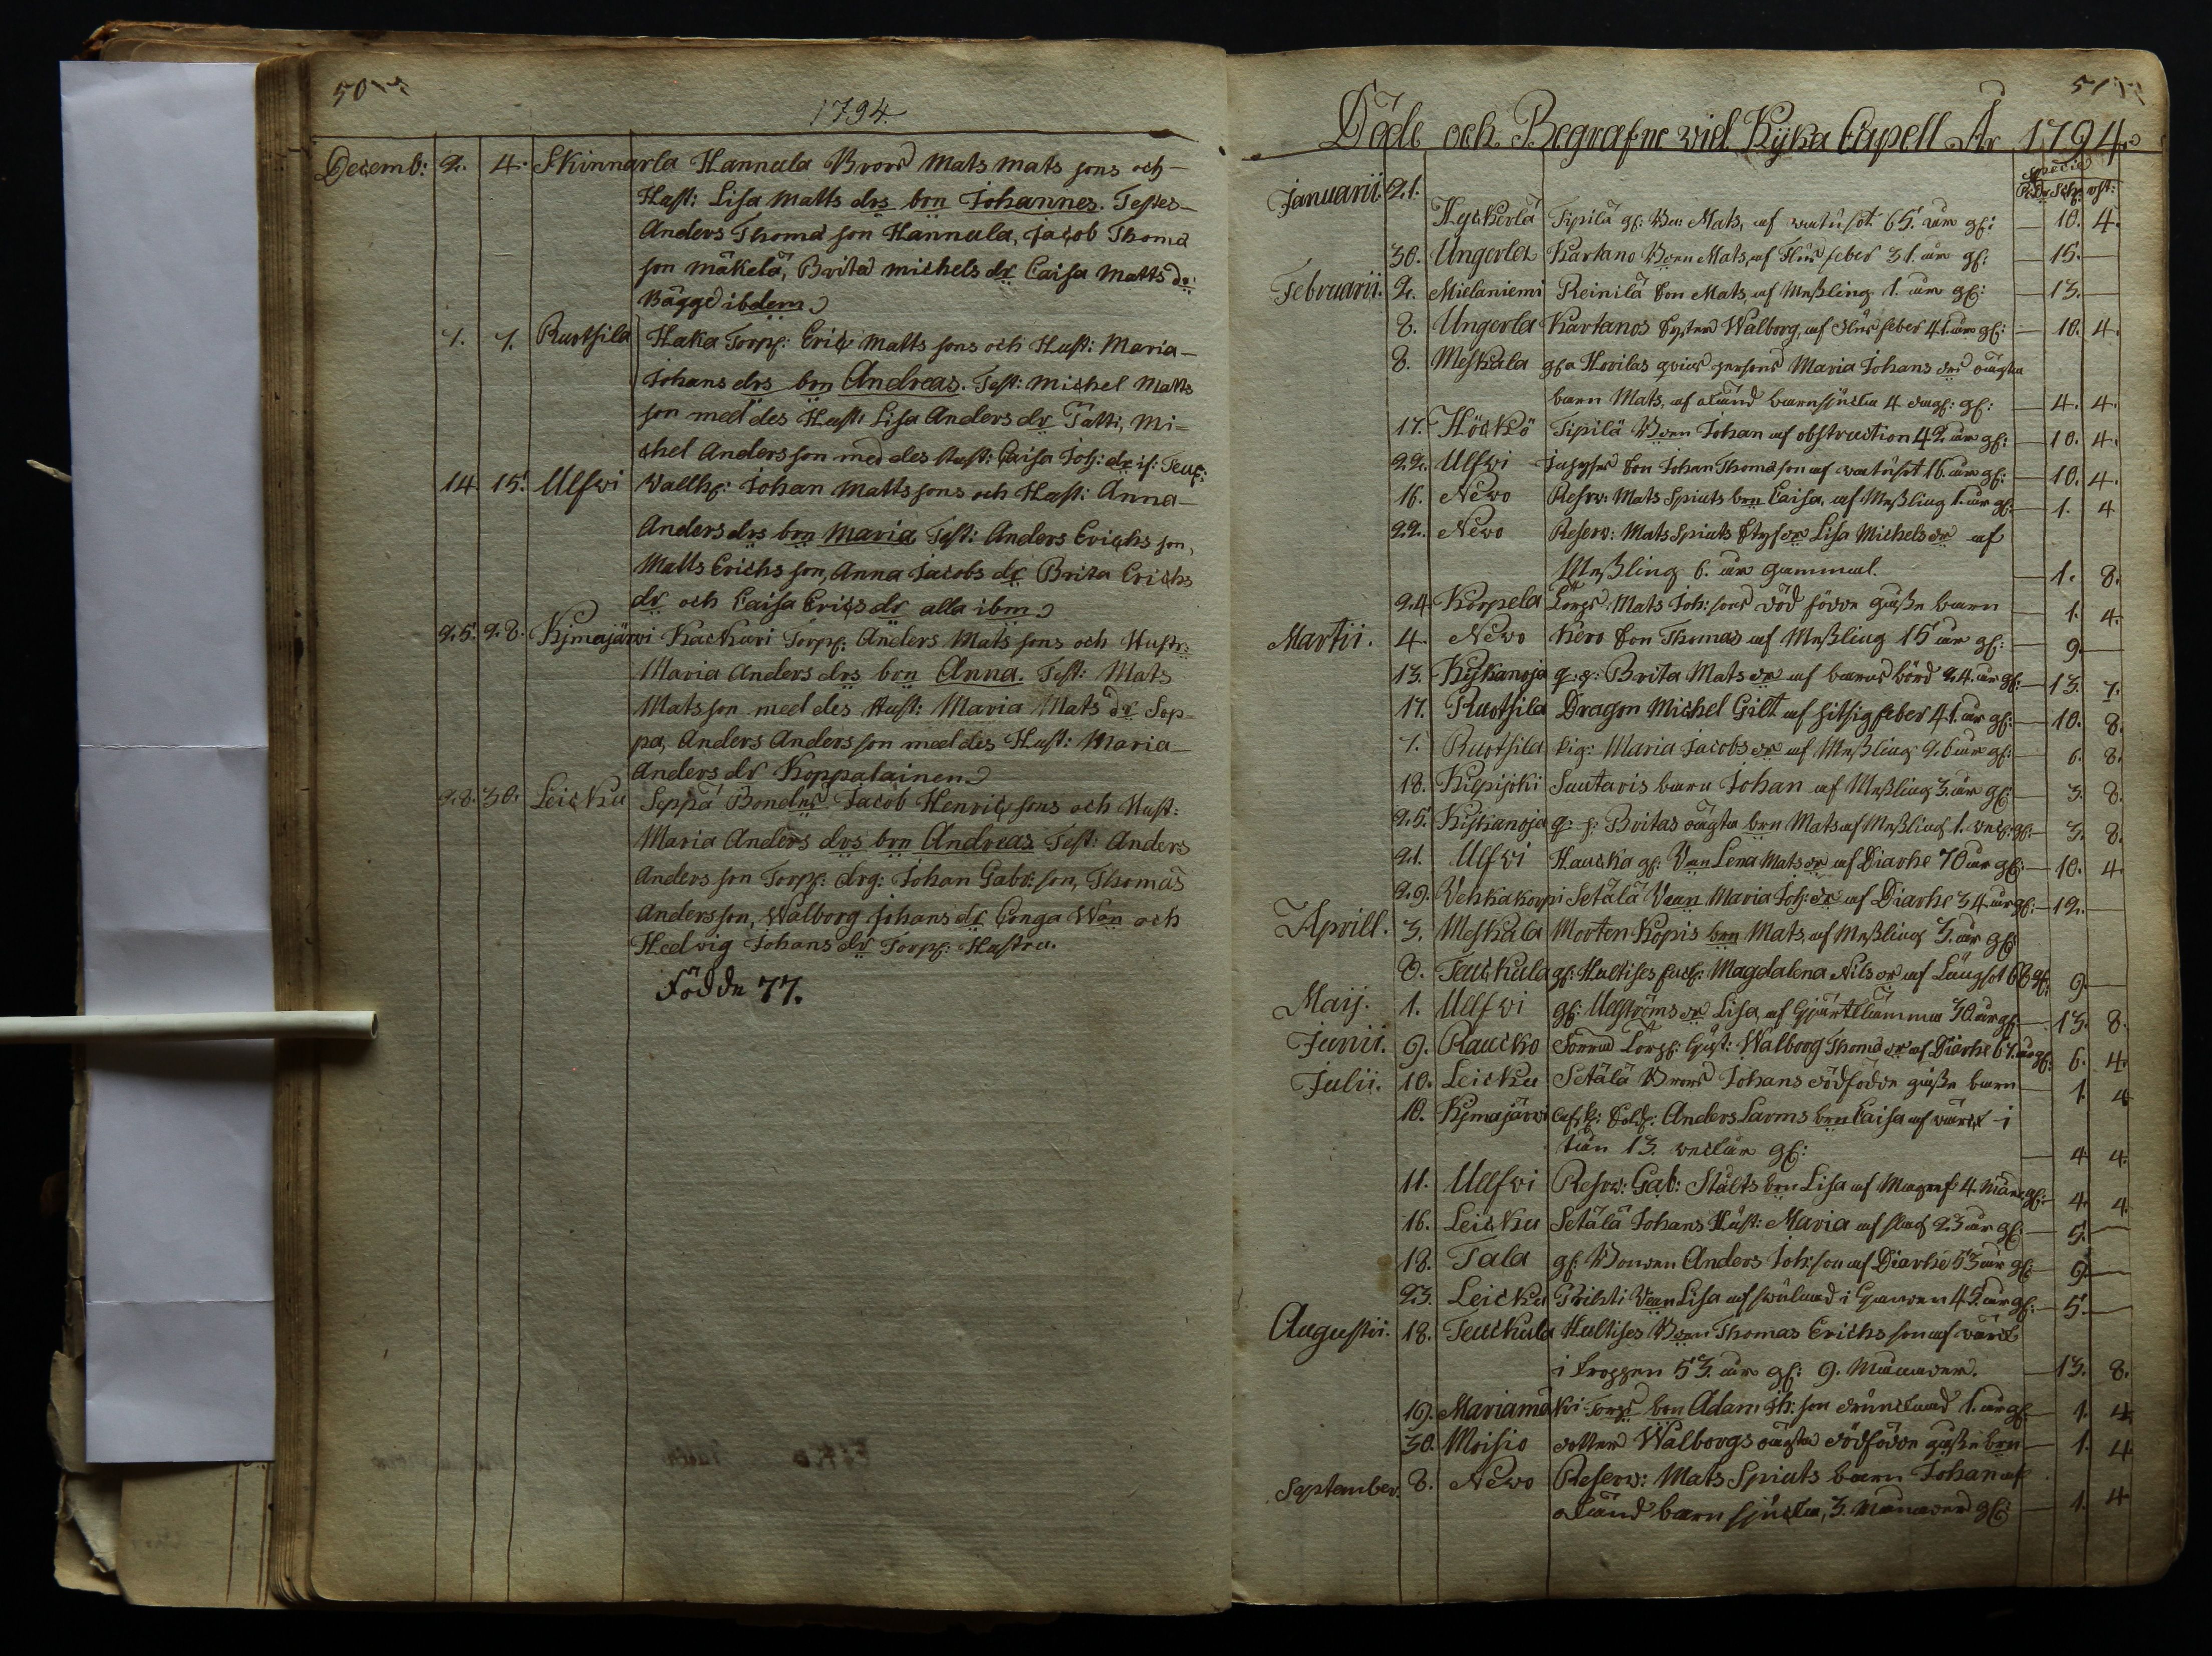 50
1794.
Decemb: 2. 4. Skinnarla Hannula Brors Mats Mats sons och
Hust: Lisa Matts drs brn Johannes. Testes
Anders Thoma son Hannula, Jacob Thoma
son Mäkelä, Brita Michels dr Caisa Matts dr
Bägge ibdem
7. 7. Ruotsila Haka Torp: Eric Matts sons och Hust: Maria
Johans drs brn Andreas. Test: Michel Matts
son med des Hust: Lisa Anders dr Tätti, Mi-
chel Andersson med des Hust: Caisa Joh: dr
14 15. Ulfwi Wallh: Johan Mattssons och Hust: Anna
Anders drs brn Maria Test: Anders Erichs son,
Matts Erichs son, Anna Jacobs dr Brita Erichs
dr och Caisa Erics dr alla ibm
25. 28. Kjmajärwi Kackari Torp: Anders Mats sons och Hustr:
Maria Anders drs brn Anna. Test: Mats
Matsson med des Hust: Maria Mats dr Sep-
pä, Anders Andersson med des Hust: Maria
Anders dr Koppalainen
28. 30. Leicku Seppä Bondes Jacob Henrics sons och Hust:
Maria Anders drs brn Andreas Test: Anders
Andersson Torp: drg: Johan Gabr: son, Thomas
Andersson, Walborg Johans dr Conga Wan och
Hedvig Johans dr Torp: Hustru.
Födde 77.
51
Döde och Begrafne wid Kyka Capell År 1794.
Specie
Rdr Sch: rst:
Januarii 21.
Hyckörlä Sipilä gf: Bn Mats, af watusot 65. år gf: 10. 4.
30. Ungerla Kartano Bven Mats, af Flus feber 31. år gf: 15.
Februarii. 2. Mielaniemi Reinilä Son Mats, af Meßling 1. år gf: 13.
8. Ungerla Kartanos Syster Walborg, af Flus feber 41. år gf: 10. 4.
8. Meskala gfa Hovilas qwins persons Maria Johans drs oägta
barn Mats, af okänd barnsjucka 4 dag: gf: 4. 4.
17. Höckö Sipilä Bven Johan af obstruction 42 år gf: 10. 4.
22. Ulfwi Son Johan Thomasson af watusot 16. år gf: 10. 4.
16. Newo Resrv: Mats Spiuts brn Caisa, af Meßling 1. år gf: 1. 4
22. Newo Reserv: Mats Spiuts Styfdr Lisa Michels dr af
Meßling 6. år gammal. 1. 8.
24 Korpela Torps Mats Joh: sons död födde gåße barn 1. 4.
Martii. 4. Newo Kero Son Thomas af Meßling 15 år gf: 9.
13. Kykanoja q: p: Brita Mats dr af barns börd 24. år gf: 13. 7.
17. Ruotsila Dragon Michel Gilt af hitsig feber 41. år gf: 10. 8.
7. Ruotsila Pig: Maria Jacobs dr af Meßling 26 år gf: 6. 8.
18. Kilpijoki Sautaris barn Johan af Meßling 3. år gf: 3. 8.
25. Kykanoja q: p: Britas oägta brn Mats af Meßling 1. gf: 3. 8.
21. Ulfwi Haucka gf: Van Lena Mats dr af Diarhe 70 år gf: 10. 4.
29. Vehkakorpi Setälä Vean Maria Joh: dr af Diarhe 34 år gf: 12.
Aprill. 3. Meskala Morten Kopis brn Mats, af Meßling 3. år gf:
8. Teuckula gf: Hultises Magdalena Nils dr af Lungsot 66 gf: 9.
Maij. 1. Ulfwi gf: Ulfströms dr Lisa, af 30 år gf: 13. 8.
Junii. 9. Raucko Torp: Hust: Walborg Thoma dr af Diarhe 67. år gf: 6. 4.
Julii. 10. Leicku Setälä Brors Johans dödfödde gåße barn 1. 4
10. Kjmajärwi Sold: Anders Larms brn Caisa af wärck i
13. weckur gf: 4 4.
11. Ulfwi Resrv: Gab: Stålts brn Lisa af Magref 4. Mån gf: 4. 4.
16. Leicku Setälä Johans Hust: Maria af slag 23 år gf: 5.
18. Tala gf: Bonden Anders Joh: son af Diarhe 53 år gf: 9.
23. Leicku Prihti Vean Lisa af swullnad i 45 år gf: 5.
Augustii. 18. Teuckula Hultises Bven Thomas Erichs son af wärck
i kroppen 53. år gf: 9. Månader. 13. 8.
19. Mariamäki Torps brn Adam Th: son drunknad 1. år gf: 1. 4
30. Moisio dotter Walborgs oägta dödfödde gåße brn 1. 4
September. 8. Newo Reserv: Mats Spiuts barn Johan af
okänd barn sjucka, 3. Månader gf: 1. 4